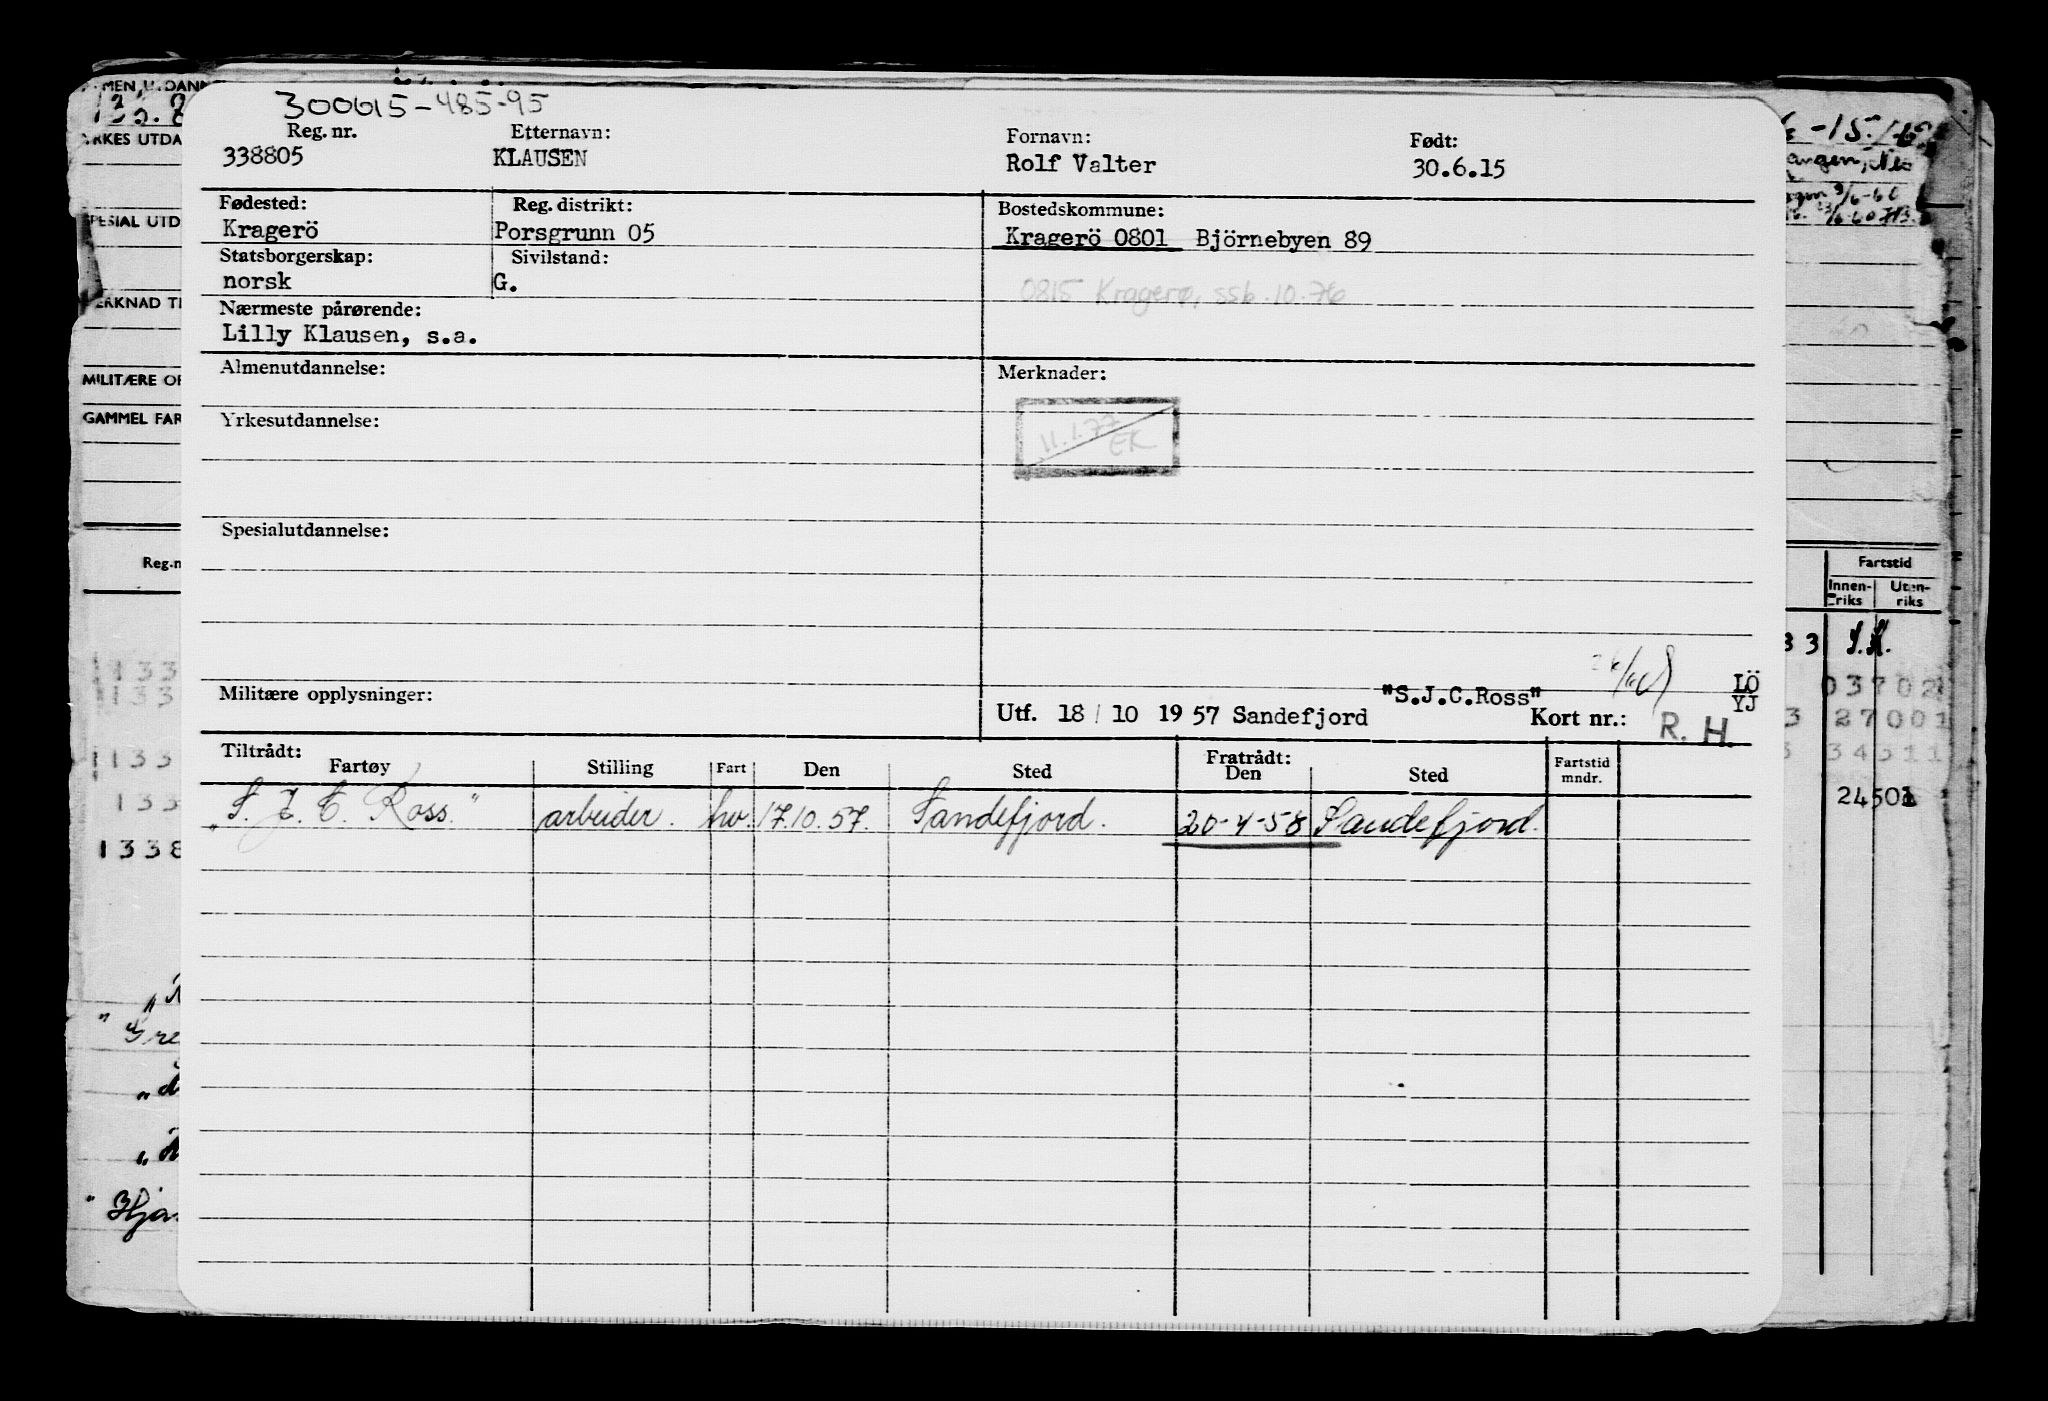 300615-485-95
Reg. nr. Etternavn: Fornavn: Født:
338805 KLAUSEN Rolf Valter 30.6.15
Fødested: Reg. distrikt: Bostedskommune:
Kragerö Porsgrunn 05 Kragerö 0801 Björnebyen 89
Statsborgerskap: Sivilstand:
norsk G.
0815 Kragerø, ssb.10.76
Nærmeste pårørende:
Lilly Klausen, s.a.
Almenutdannelse: Merknader:
Yrkesutdannelse:
11.1.77
EK
Spesialutdannelse:
LÖ
YJ
Militære opplysninger:
"S.J.C.Ross"
Utf. 18/10 1957 Sandefjord Kort nr.: R. H.
Tiltrådt: Fratrådt:
Fartøy Stilling Fart Den Sted Den Sted Fartstid mndr.
"S. J. C. Ross." arbeider. hv. 17.10.57. Sandefjord. 20-4-58 Sandefjord.
UTDA
SPESIAL UTD
MILITÆRE OP
GAMMEL FAR
Reg.n
133
133
133
133
1338
Fartstid
Innen-riks Uten-riks
03702
27001
34511
24501